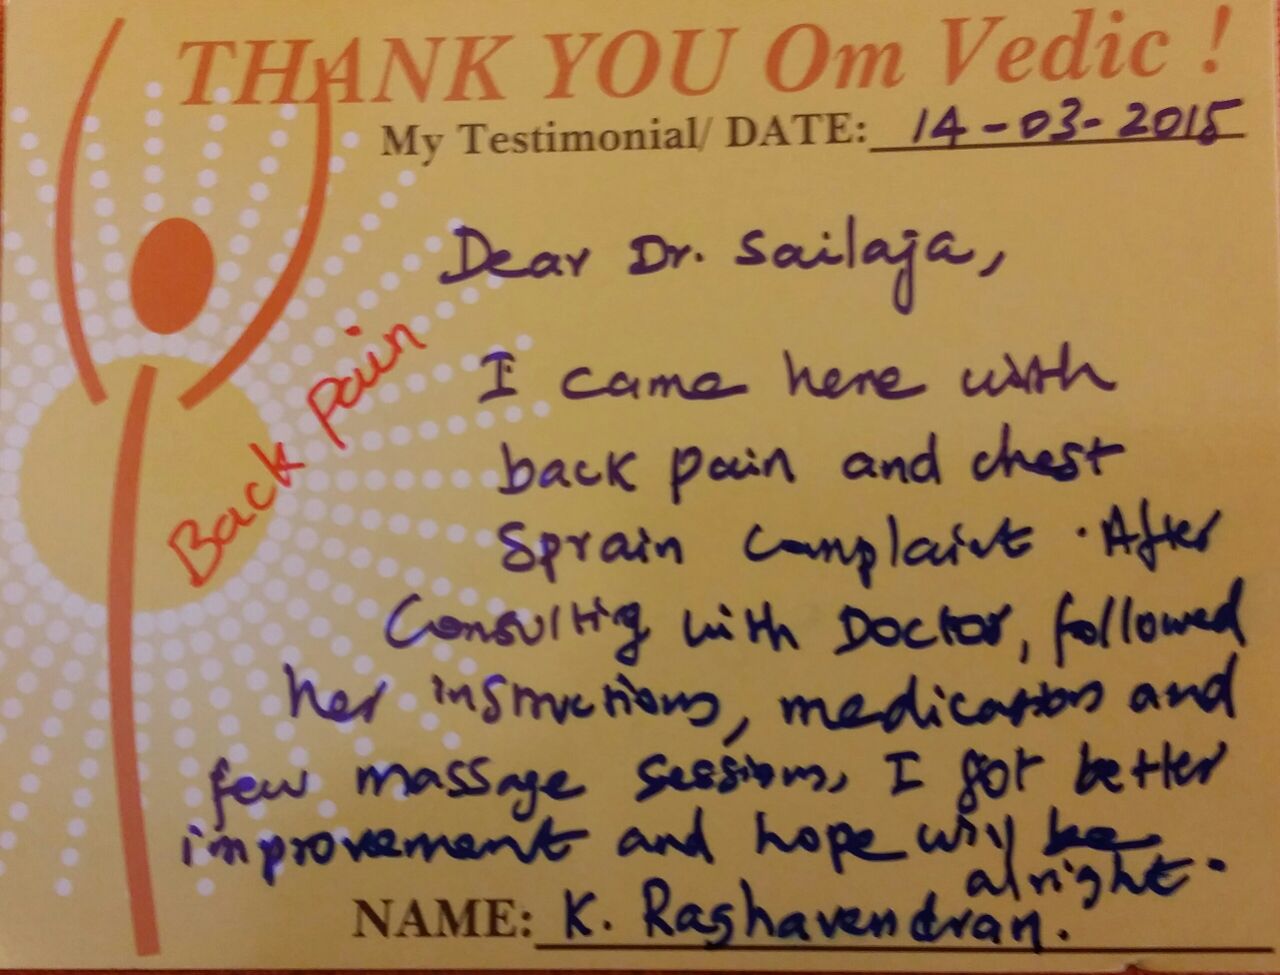 THANK YOU Om Vedic !
My Testimonial/ DATE: 14-03-2015
Dear Dr. Sailaja,
I came here with
Back pain
back pain and chest
Sprain complaint. After
Consulting with Doctor, followed
her instructions, medications and
few massage sessions, I got better
improvement and hope will be
alright.
NAME: K. Raghavendran.